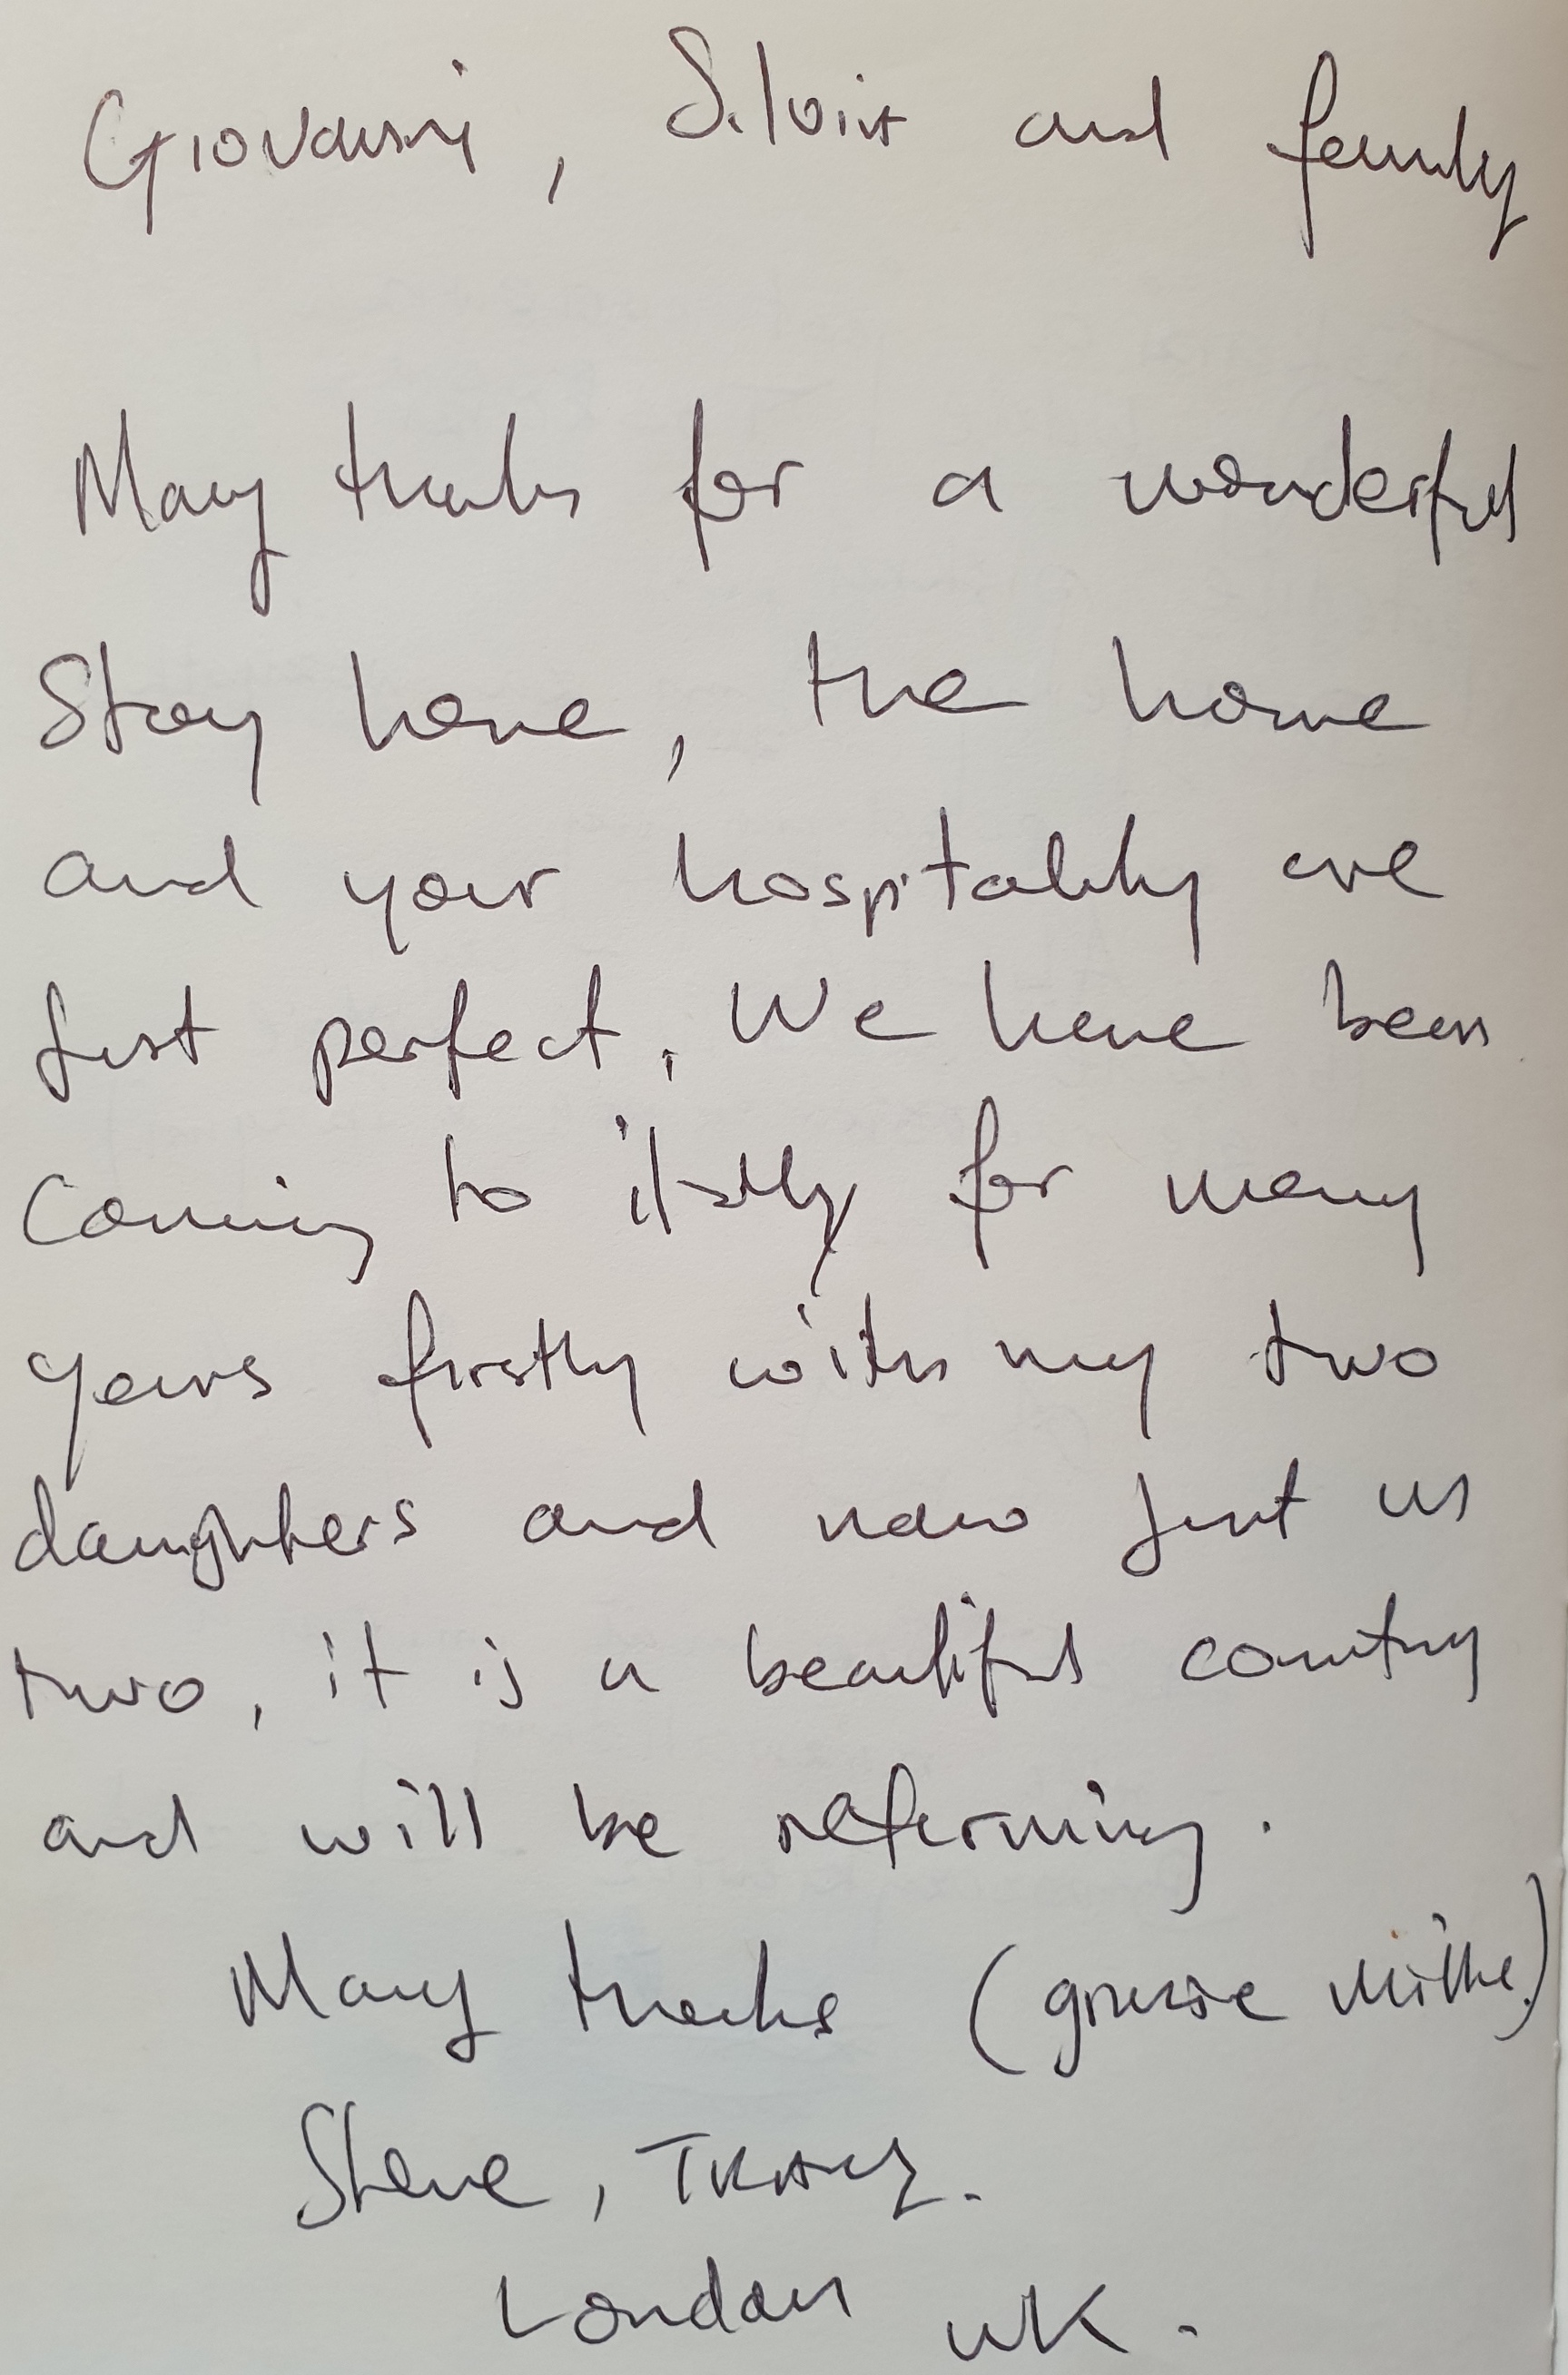 Giovanni, Silvia and family
Many thanks for a wonderful
Stay here, the home
and your hospitality are
just perfect. We have been
Coming to italy for many
years firstly with my two
daughters and now just us
two, it is a beautiful country
and will be returning.
Many thanks (grazie mille)
Steve, TRAcy.
London UK.